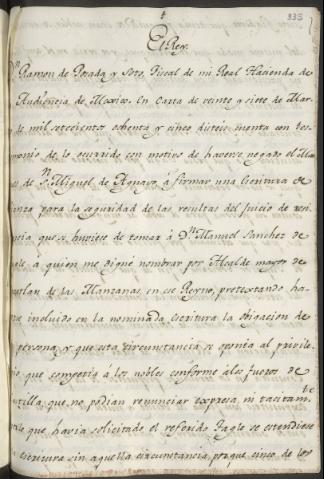 335
El Rey.
Dn. Ramon de Posada y Soto Fiscal de mi Real Hacienda de
Audiencia de Mexico. En Carta de veinte y siete de Mar-
de mil setecientos ochenta y cinco disteis cuenta con tes-
monio de lo ocurrido con motivo de haverse negado el Mar
es de Sn. Miguel de Aguayo, á firmar una Escritura de
ianza para la seguridad de las resultas del Juicio de resi
ncia que se huviese de tomar á Dn. Manuel Sanchez de
á quien me digné nombrar por Alcalde mayor de
tlan de las Manzanas en ese Reyno, pretextando ha-
incluido en la nominada escritura la obligacion de
persona, y que esta circunstancia se oponia al privile-
io que competia á los nobles conforme á los fueros de
stilla, que no podian renunciar expresa, ni tacitamte.
que havia solicitado el referido Tagle se estendiese
escritura sin aquella circunstancia, porque cinco de los